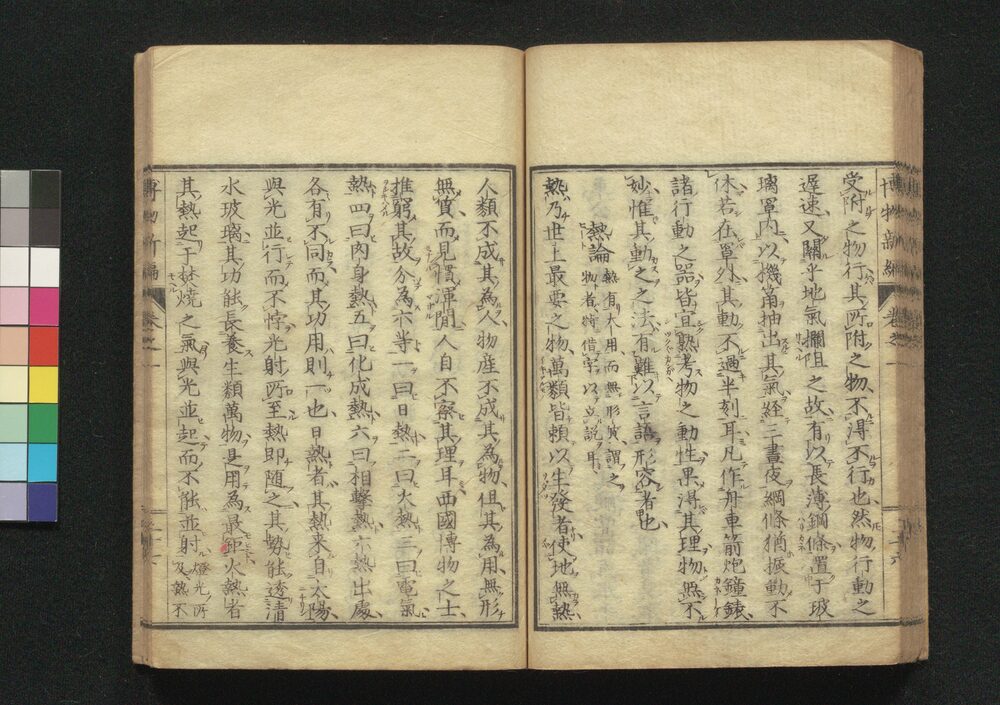 博物新編
受附之物行其所附之物不得不行也然物行動之
遲速又關乎地氣攔阻之故有以長薄鋼條置于玻
璃罩內以機筩抽出其氣經三晝夜綱條猶振動不
休若在罩外其動不過半刻耳凡作舟車箭炮鐘錶
諸行動之器皆宜熟考物之動性果得其理物無不
妙惟其動之之法有難以言語形容者也
熱論 熱有大用而無形質謂之
物者特借字以立說耳
熱乃世上最要之物萬類皆賴以生發者使地無熱
人類不成其為人物產不成其為物但其為用無形
無質而見慣渾閒人自不察其理耳西國博物之士
推窮其故分為六等一曰日熱二曰火熱三曰電氣
熱四曰肉身熱五曰化成熱六曰相擊熱六熱出處
各有不同而其功用則一也日熱者其熱来自太陽
與光並行而不悖光射所至熱即隨之其勢能透清
水玻璃其功能長養生類萬物是用為最鉅火熱者
其熱起于焚燒之氣與光並起而不能並射 燈光所
及熱不
博物新編 卷之一